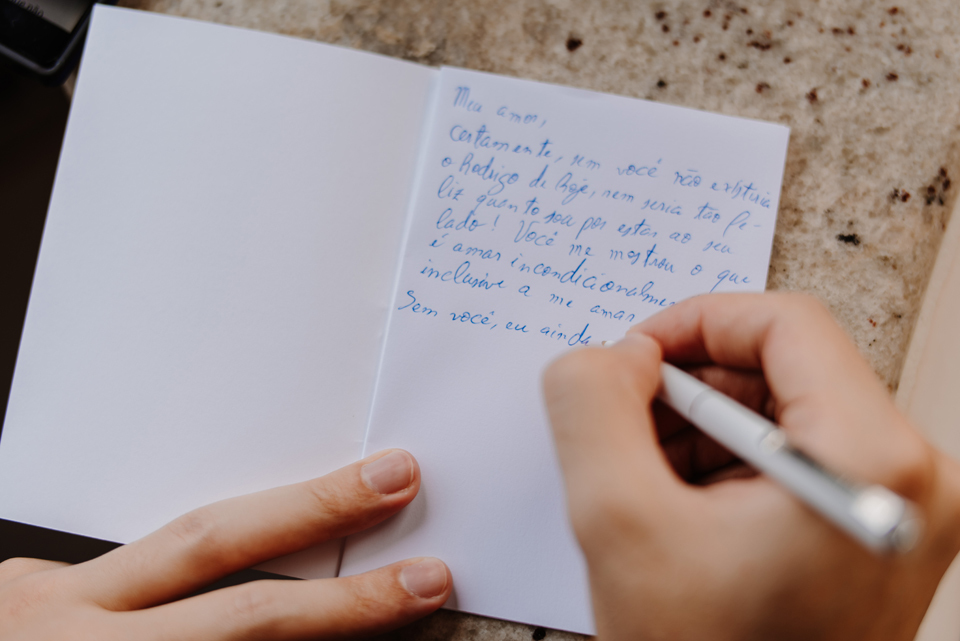 Meu amor,
certamente, sem você não existiria
o Rodrigo de hoje, nem seria tão fe-
liz quanto sou por estar ao seu
lado! Você me mostrou o que
é amar incondicionalmen
inclusive a me amar
Sem você, eu ainda